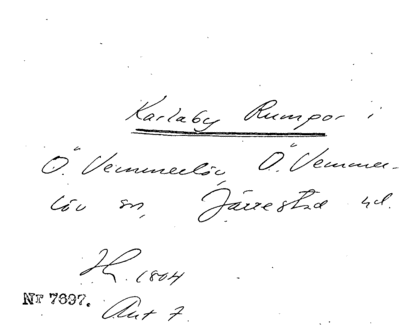 Karlaby Rumpor i
Ö. Vemmerlöv, Ö. Vemmer-
löv sn, Järrestad hd.
1804
Nr 7697.
Ant 7